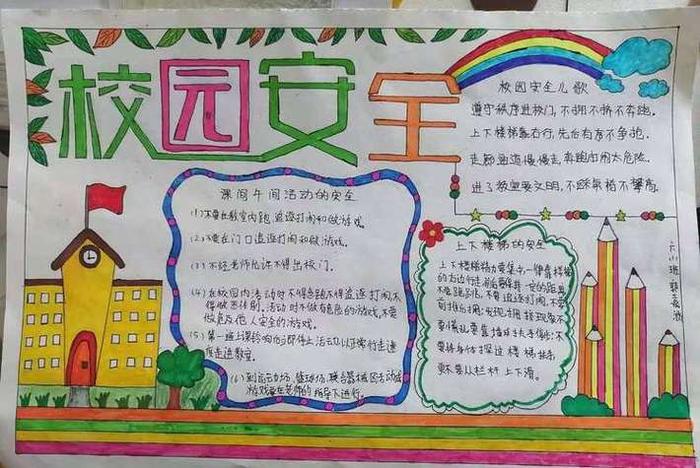 校园安全
校园安全儿歌
遵守秩序进校门，不拥不挤不奔跑。
上下楼梯靠右行，先后有序不争抢。
走廊通道慢慢走，奔跑打闹太危险。
进了教室要文明，不踩桌椅不攀高。
课间午间活动的安全
(1)不要在教室内跑、追逐打闹和做游戏。
(2)不要在门口追逐打闹和做游戏。
(3)不经老师允许不得出校门。
(4)在校园内活动时不得急跑不得追逐打闹，不
得做恶作剧。活动时不做危险的游戏，不要
做危及他人安全的游戏。
(5)第一遍上课铃响后即停止活动，以正常行走速
度走进教室。
(6)到运动场、篮球场、
游戏要在老师的指导下进行。
上下楼梯的安全
上下楼梯精力要集中，一律靠楼梯
的右边行走，前后要保持一定的距离
不要跑跳，不要追逐打闹，不要
前推后拥；发现拥挤现象不
要慌乱要靠墙或扶手停
要将身体探过楼梯扶手
更不要从栏杆上下滑。